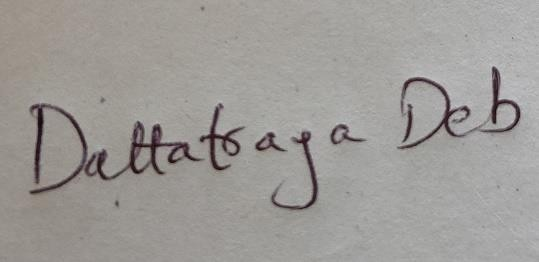 Dattatraya Deb